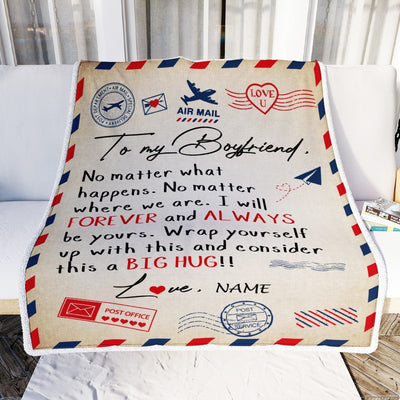 AIR MAIL
LOVE
U
To my Boyfriend,
No matter what
happens. No matter
where we are. I will
FOREVER and ALWAYS
be yours. Wrap yourself
up with this and consider
this a BIG HUG!!
Love, NAME
POST OFFICE
POST
SERVICE